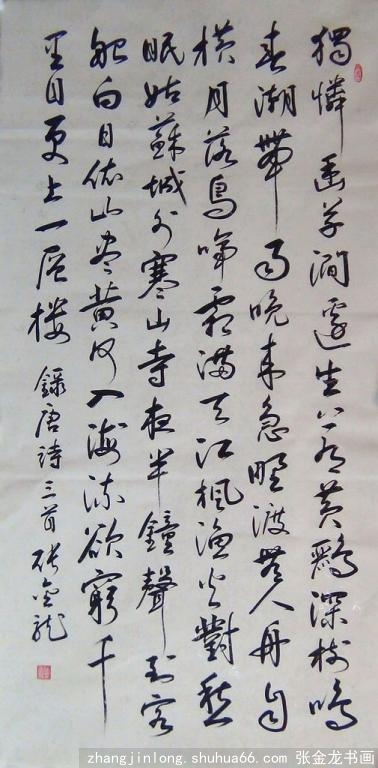 獨憐幽草澗邊生上有黃鸝深樹鳴
春潮帶雨晚來急野渡無人舟自
橫月落烏啼霜滿天江楓漁火對愁
眠姑蘇城外寒山寺夜半鐘聲到客
船白日依山盡黃河入海流欲窮千
里目更上一層樓 錄唐詩三首 張金龍
zhangjinlong.shuhua66.com 张金龙书画